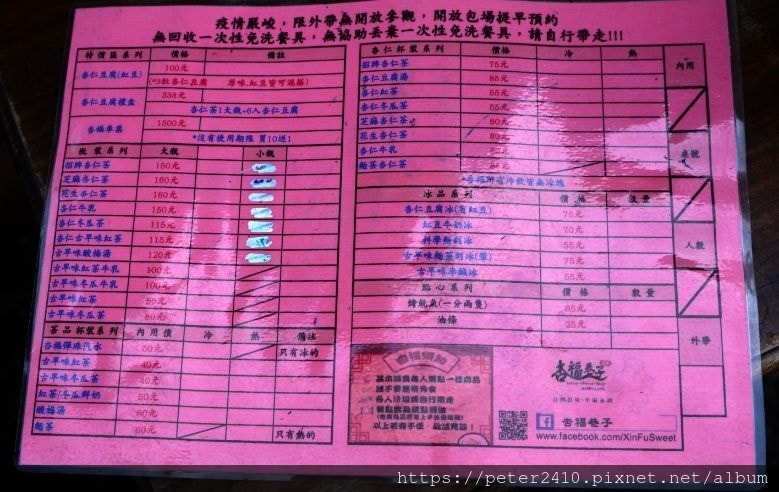 疫情嚴峻，限外帶無開放參觀，開放包場提早預約
無回收一次性免洗餐具，無協助丟棄一次性免洗餐具，請自行帶走!!!
特價區系列 價格 備註
杏仁豆腐(紅豆) 100元
(*3粒杏仁豆腐 原味.紅豆皆可混搭)
杏仁豆腐禮盒 338元
杏仁茶1大瓶+6入杏仁豆腐
杏福車票 1500元
*沒有使用期限 買10送1
瓶裝系列 大瓶 小瓶 備註
招牌杏仁茶 150元
芝麻杏仁茶 160元
花生杏仁茶 160元
杏仁牛乳 150元
杏仁冬瓜茶 115元
杏仁古早味紅茶 115元
古早味酸梅湯 120元
古早味紅茶牛乳 100元
古早味冬瓜牛乳 100元
古早味紅茶
古早味冬瓜茶 60元
茶品杯裝系列 內用價 冷 熱 備註
杏福彈珠汽水 50元 只有冰的
古早味紅茶 40元
古早味冬瓜茶 40元
紅茶/冬瓜鮮奶 50元
酸梅湯 60元
麵茶 60元 只有熱的
杏仁杯裝系列 價格 冷 熱
招牌杏仁茶 75元
杏仁豆腐湯 85元
杏仁紅茶 55元
杏仁冬瓜茶 55元
芝麻杏仁茶 80元
花生杏仁茶 80元
杏仁牛乳
麵茶杏仁茶
*杏福所有冷飲皆無冰塊
冰品系列 價格 數量
杏仁豆腐冰(有紅豆) 75元
紅豆牛奶冰 70元
科學麵剉冰 55元
古早味麵茶剉冰(葷) 75元
古早味半鹹冰 55元
點心系列 價格 數量
烤魷魚(一分兩隻) 65元
油條 25元
內用
桌號
人數
外帶
杏福須知
基本消費每人須點一樣商品
請不要攜帶外食
各人垃圾請自行帶走
餐點飲品現點現做
以上若有不便，敬請見諒！
杏福巷子
杏福巷子
www.facebook.com/XinFuSweet
https://peter2410.pixnet.net/album